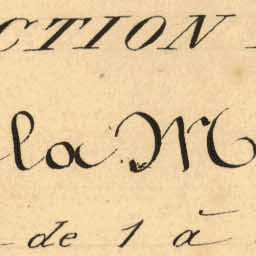 CTION
la M
de 1 à